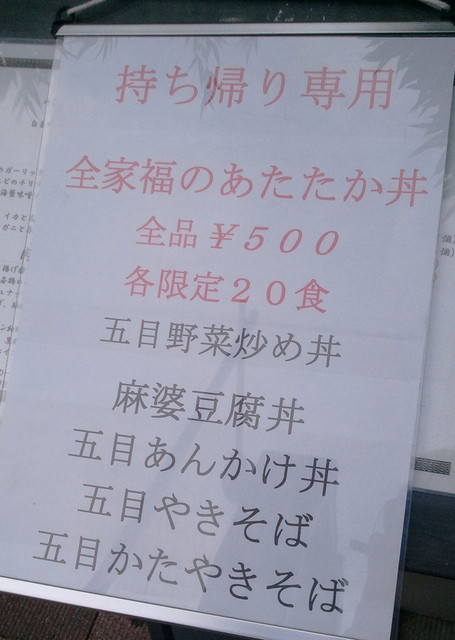 持ち帰り専用
全家福のあたたか丼
全品￥５００
各限定２０食
五目野菜炒め丼
麻婆豆腐丼
五目あんかけ丼
五目やきそば
五目かたやきそば